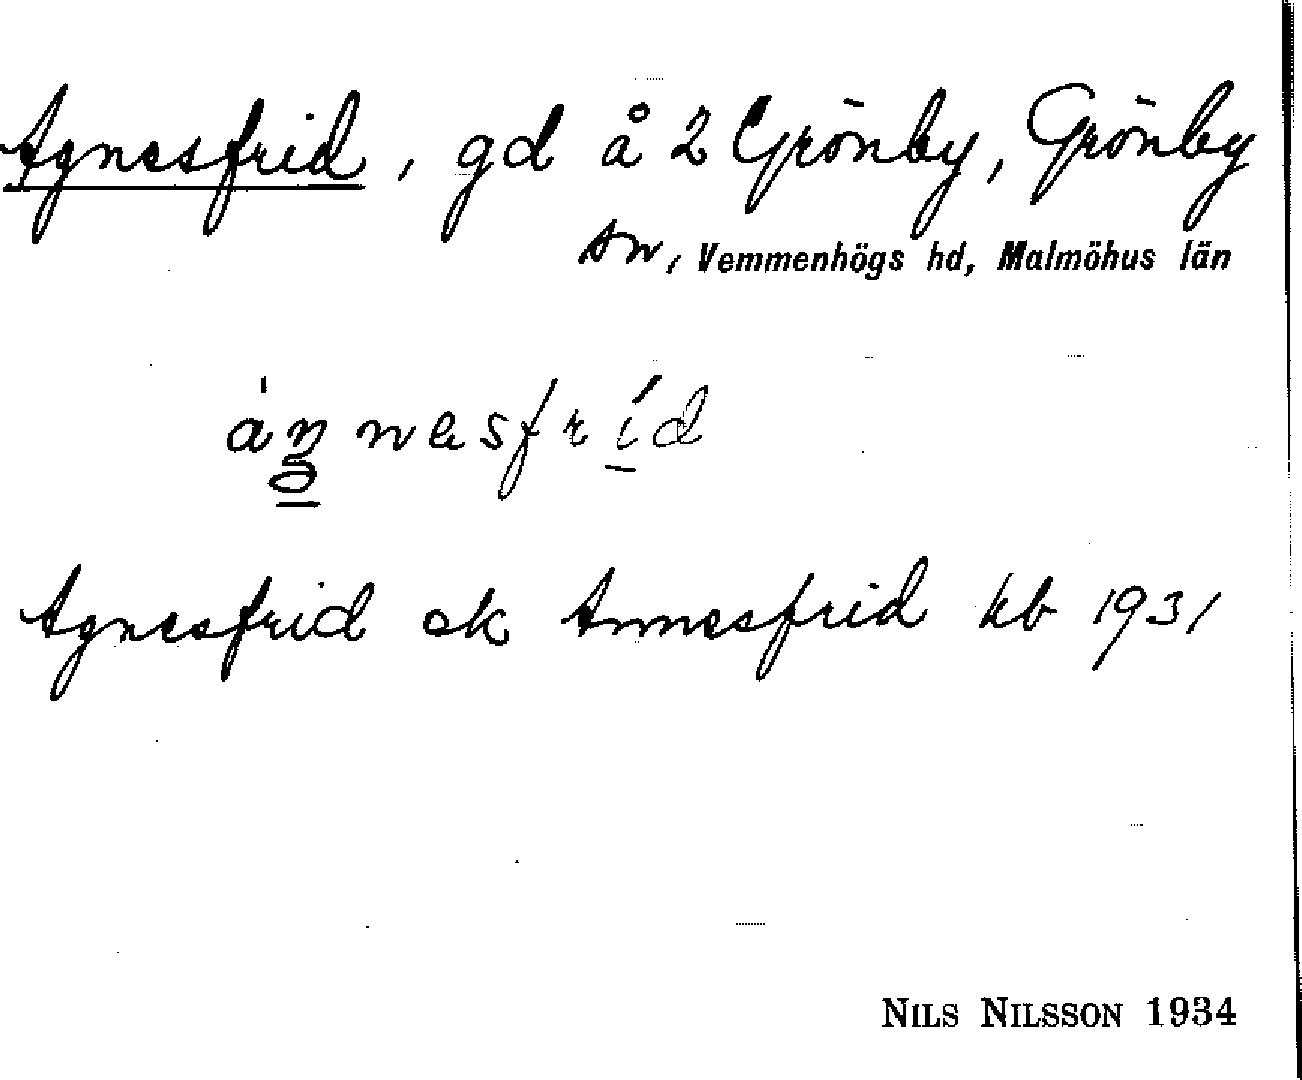 Agnesfrid, gd å 2 Grönby, Grönby
sn, Vemmenhögs hd, Malmöhus län
áŋnesfríd
Agnesfrid ok Annesfrid kb 1931
NILS NILSSON 1934